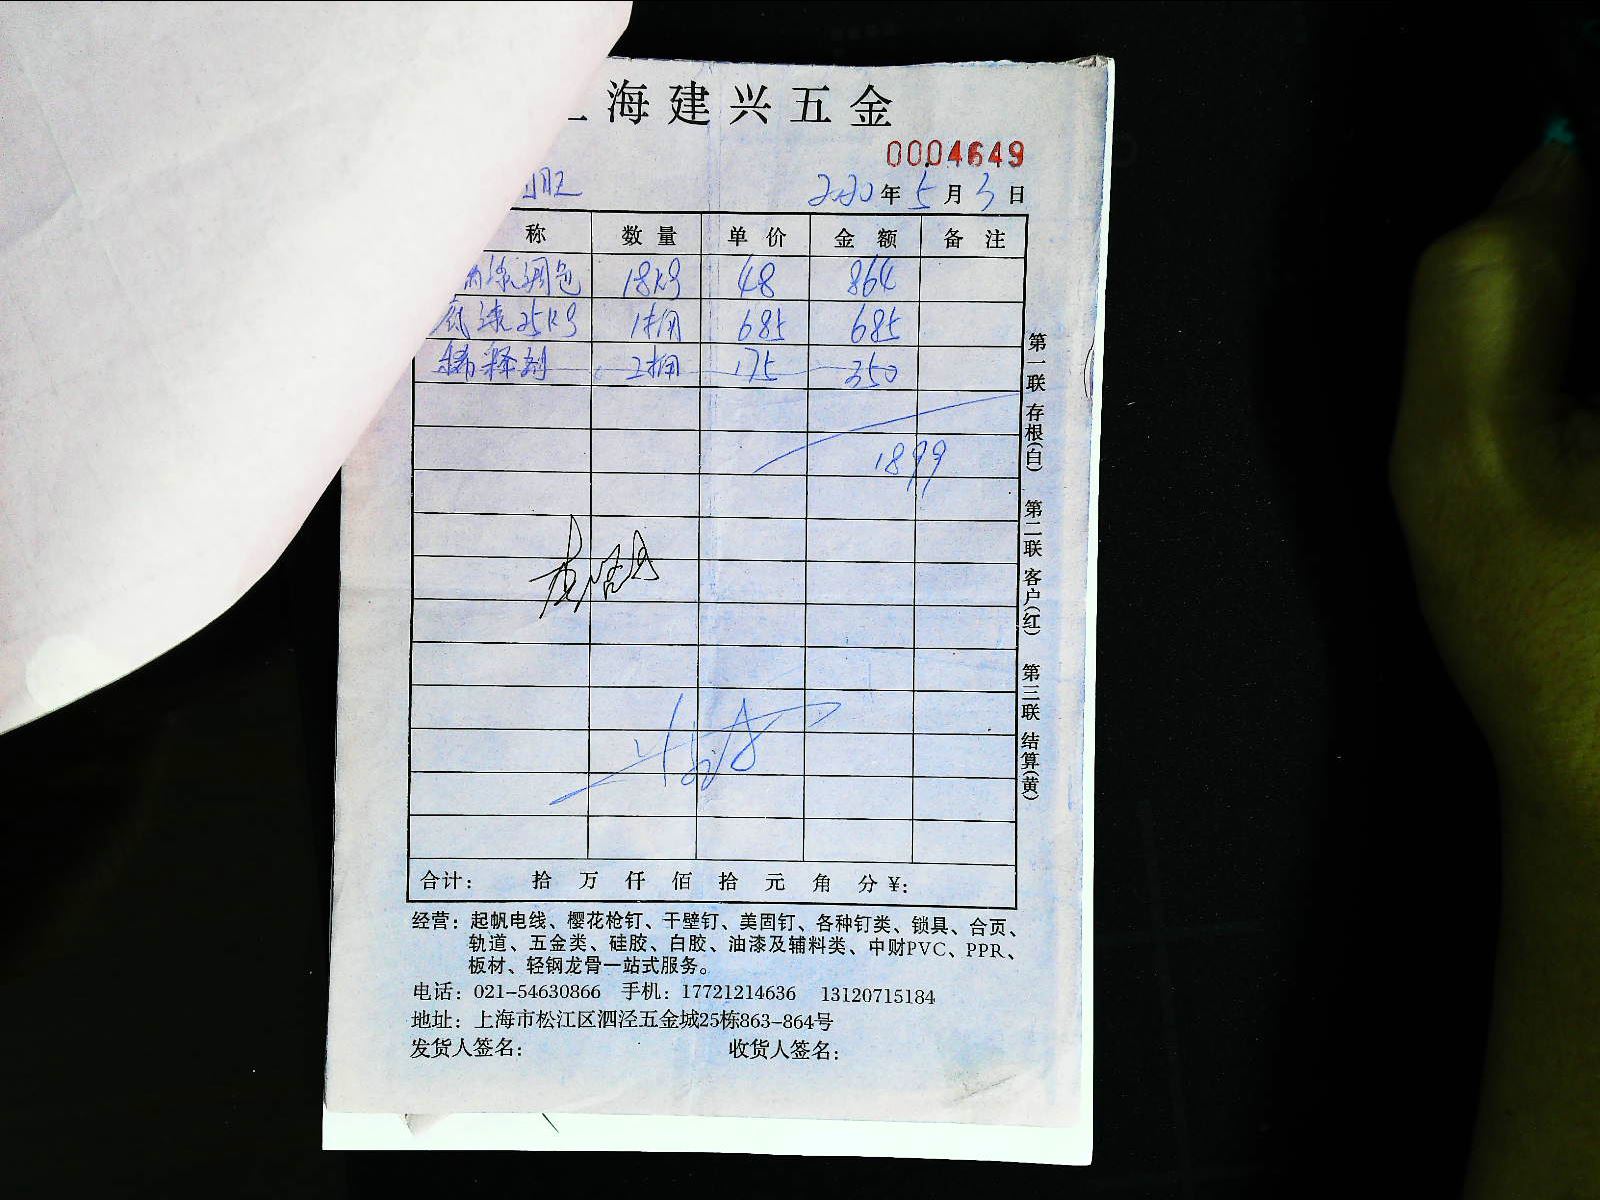 海建兴五金
0004649
2020年5月3日
称 数量 单价 金额 备注
漆调色 18kg 48 864
底漆25kg 1桶 685 685
稀释剂 2桶 175 350
1899
第一联 存根(白) 第二联 客户(红) 第三联 结算(黄)
合计: 拾 万 仟 佰 拾 元 角 分 ¥:
经营: 起帆电线、樱花枪钉、干壁钉、美固钉、各种钉类、锁具、合页、
轨道、五金类、硅胶、白胶、油漆及辅料类、中财PVC、PPR、
板材、轻钢龙骨一站式服务。
电话: 021-54630866 手机: 17721214636 13120715184
地址: 上海市松江区泗泾五金城25栋863-864号
发货人签名: 收货人签名: